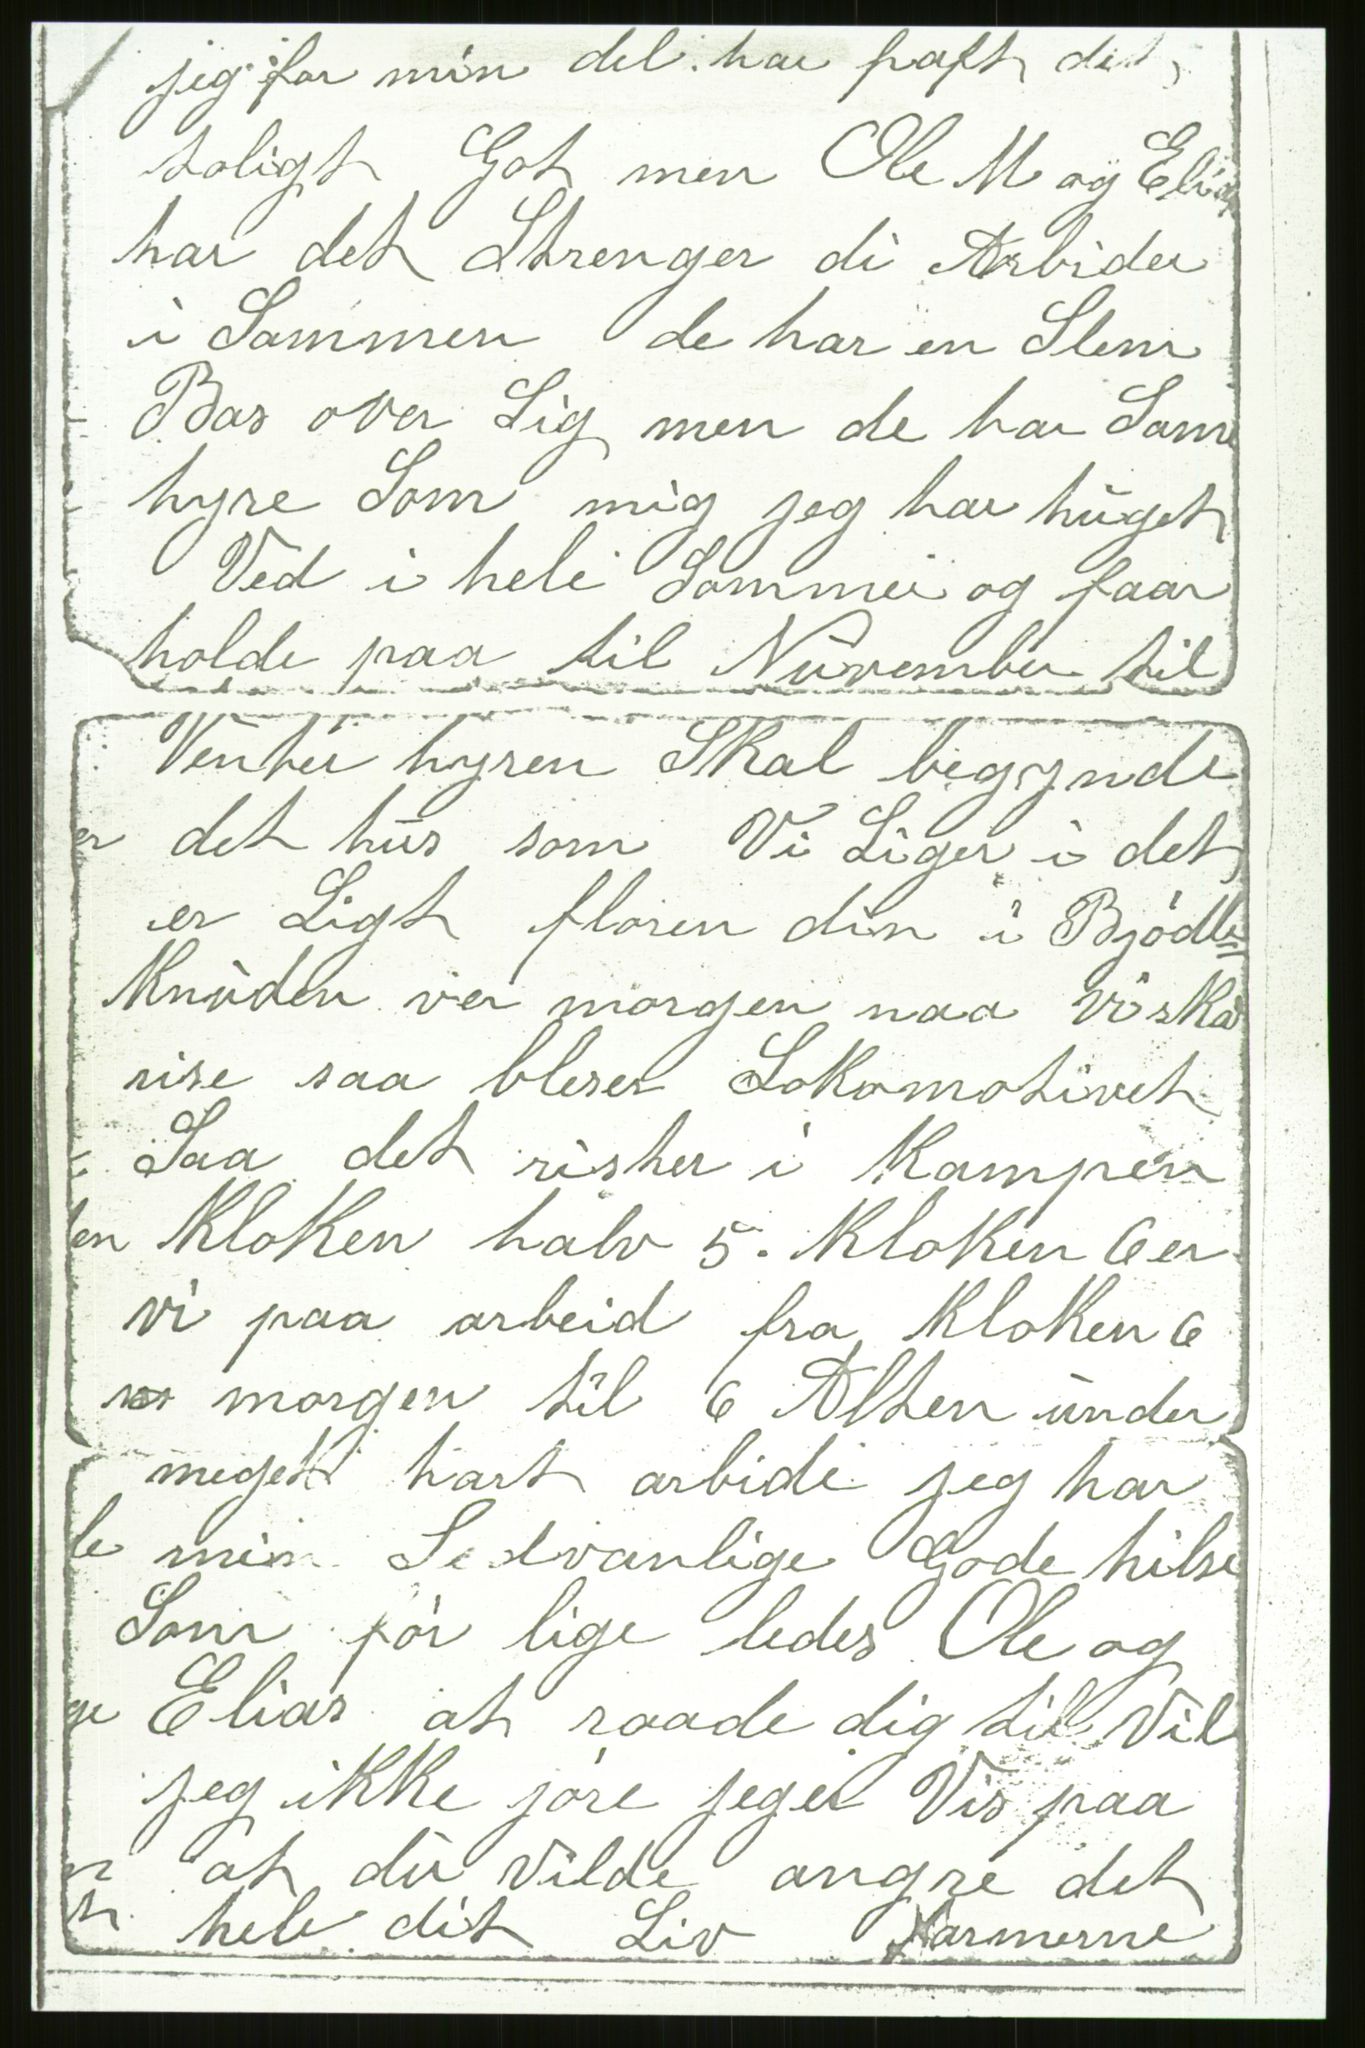 jeg for min del har haft det
toligt Got men Ole M og Elias
har det Strenger di Arbider
i Sammen de har en Slem
Bas over Sig men de har Same
hyre Som mig jeg har hûget
Ved i hele Sommer og faar
holde paa til Nûvember til
Venter hyren Skal begynde
det hûs som Vi Liger i det
er Ligt floren din i Bjödle=
Knûden ver morgen naa Vi skal
rise saa bleser Lokomotivet
Saa det rister i Kampen
Kloken halv 5. Kloken 6 er
vi paa arbeid fra Kloken 6
morgen til 6 Aften ûnder
meget hart arbide jeg har
min Sedvanlige Gode hilse
Som för lige ledes Ole og
Elias at raade dig til Vil
jeg ikke jöre jeger Vis paa
at dû Vilde angre det
hele dit Liv Farmerne